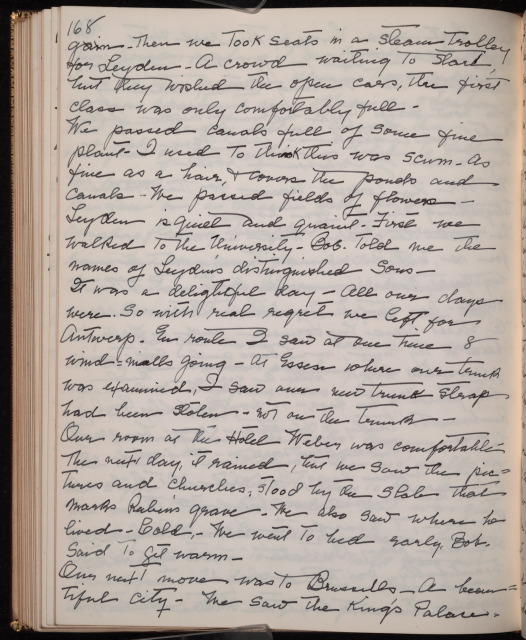 168
again - Then we took seats in a steam trolley
for Leyden - A crowd waiting to start,
but they wished the open cars, the first
class was only comfortably full -
We passed canals full of some fine
plant - I used to think this was scum - As
fine as a hair, & covers the ponds and
canals - We passed fields of flowers -
Leyden is quiet and quaint - First we
walked to the University - Bob. told me the
names of Leydens distinguished Sons -
It was a delightful day - All our days
were. So with real regret we left for
Antwerp. En route I saw at one time 8
wind-mills going - At Essen where our trunk
was examined, I saw our new trunk straps
had been stolen - not on the trunk -
Our room at the Hotel Weber was comfortable -
The next day, it rained, but we saw the pic=
tures and churches, stood by the slab that
marks Rubens grave - We also saw where he
lived - Cold, - We went to bed early, Bob.
said to get warm -
Our next move was to Brussells - A beau=
tiful city - We saw the King's Palace -